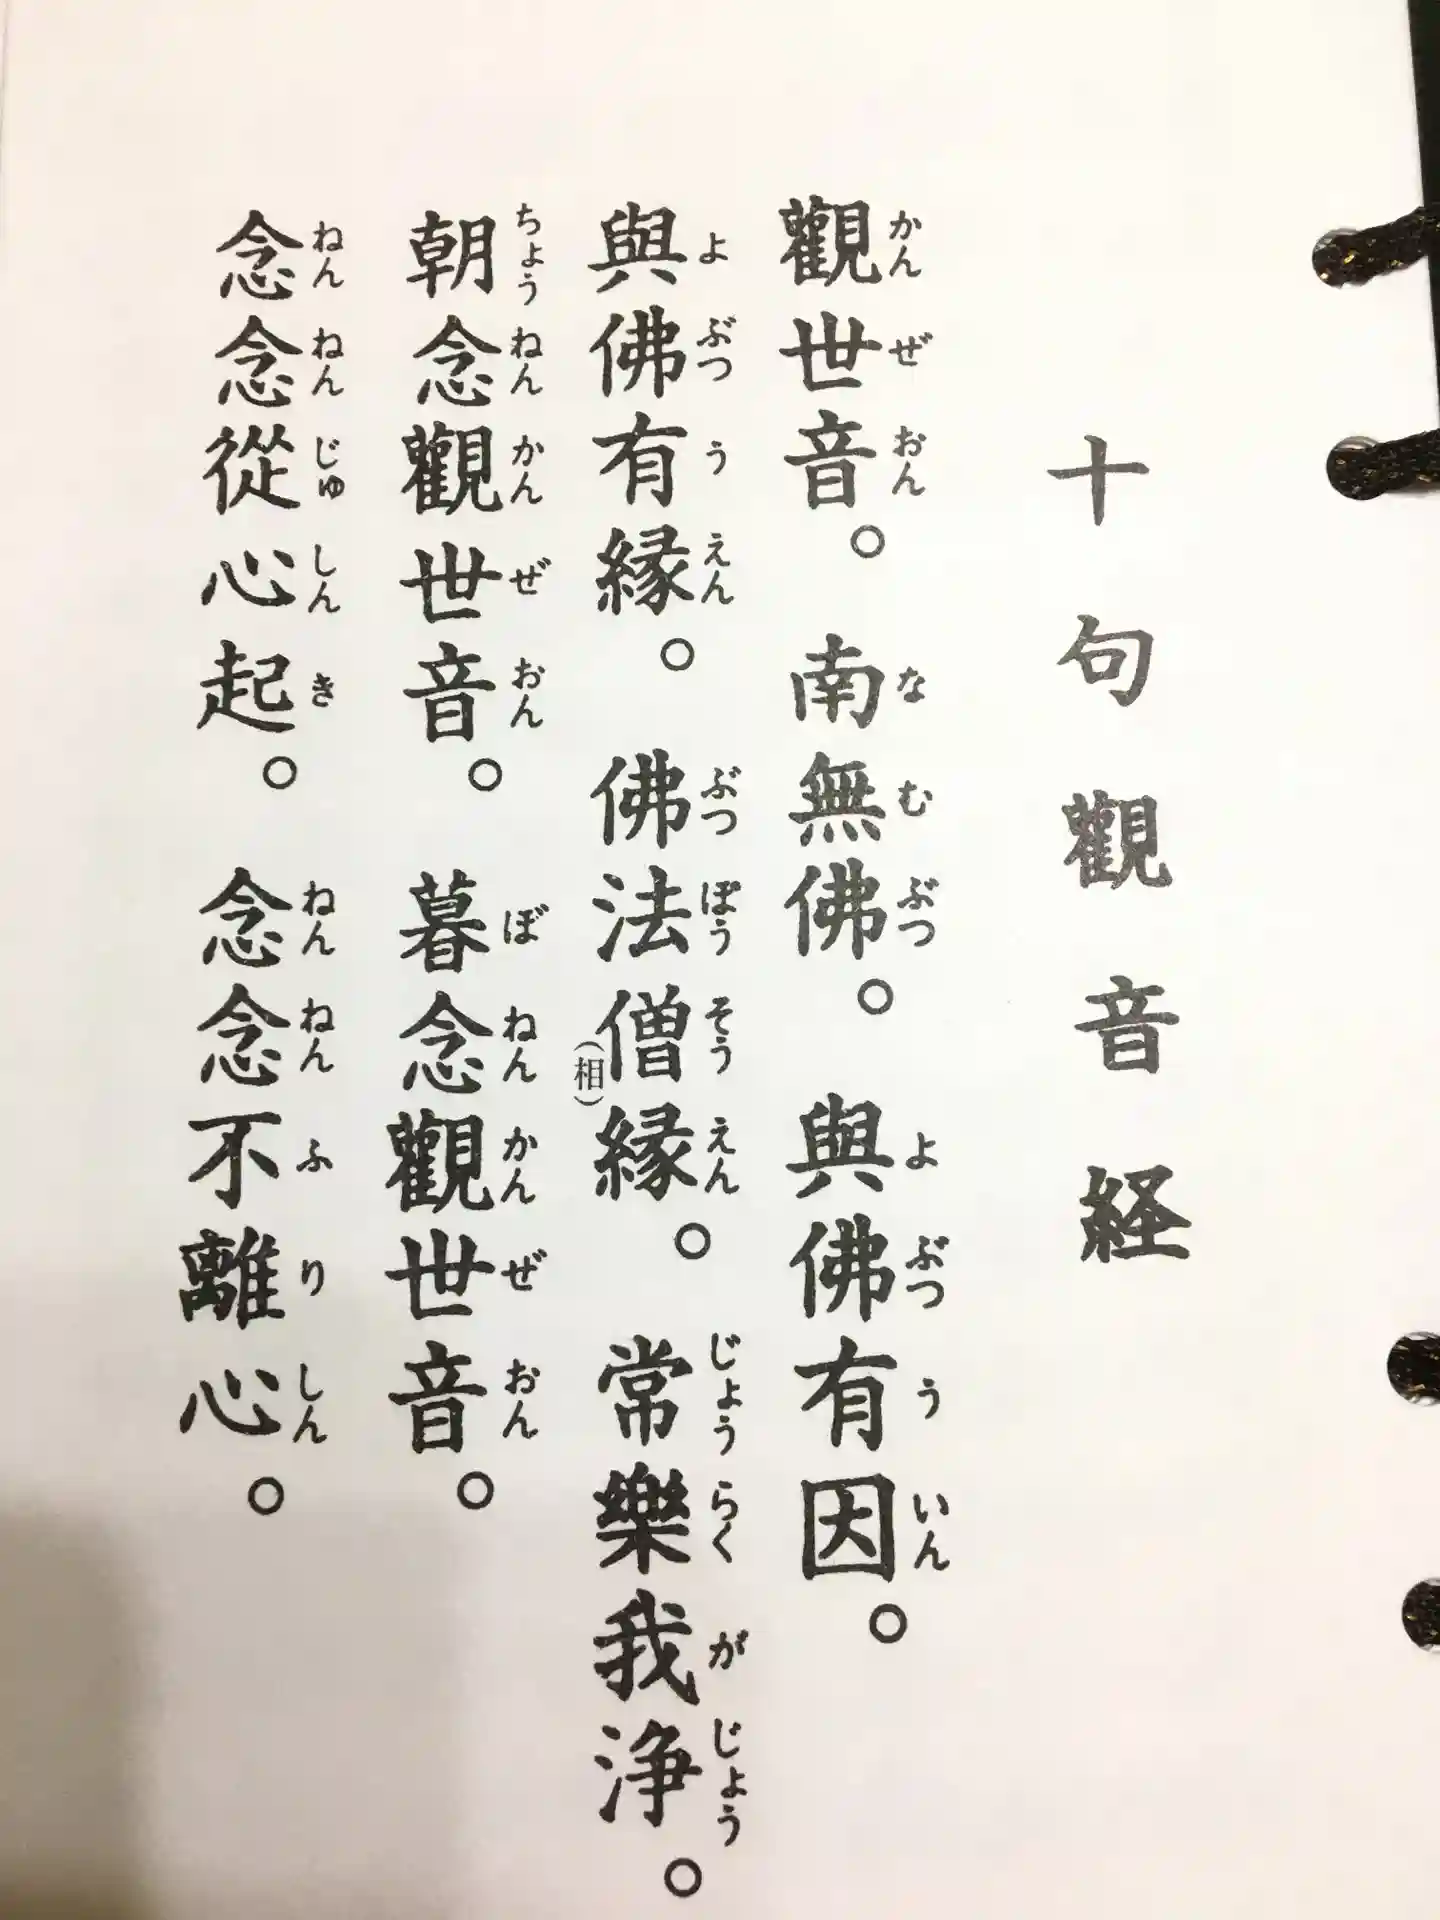 十句觀音経
觀世音。 南無佛。 與佛有因。
かんぜおん なむぶつ よぶつういん
與佛有縁。 佛法僧縁。 常樂我浄。
よぶつうえん ぶっぽうそうえん じょうらくがじょう
(相)
朝念觀世音。 暮念觀世音。
ちょうねんかんぜおん ぼねんかんぜおん
念念從心起。 念念不離心。
ねんねんじゅしんき ねんねんふりしん